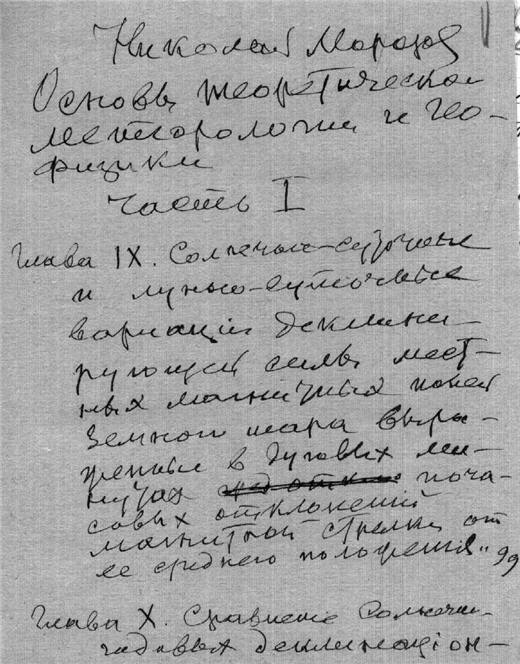 Николай Морозов
Основы теоретической
метеорологии и гео-
физики
Часть I
Глава IX. Солнечно-суточные
и лунно-суточные
вариаціи деклини-
рующей силы мест-
ных магнитных полей
Земного шара выра-
женные в дуговых ми-
нутах поча-
совых отклонений
магнитной стрелки от
ее среднего положения" 99
Глава X. Сравнение Солнечно-
годовых деклинаціон-